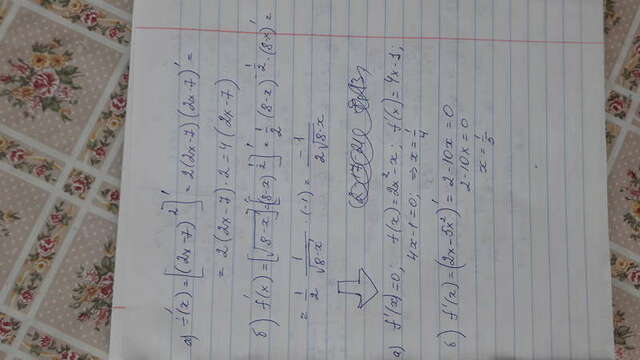 а) f'(x) = [(2x-7)²]' = 2(2x-7)(2x-7)' =
= 2(2x-7)·2 = 4(2x-7)
б) f'(x) = [√8-x]' = [(8-x)^½]' = ½·(8-x)^-½·(8-x)' =
= ½ 1/√8-x ·(-1) = -1/2√8-x
а) f'(x)=0; f(x)=2x²-x; f'(x)=4x-1;
4x-1=0; ⇒ x=¼
б) f'(x)=(2x-5x²)' = 2-10x = 0
2-10x=0
x=⅕